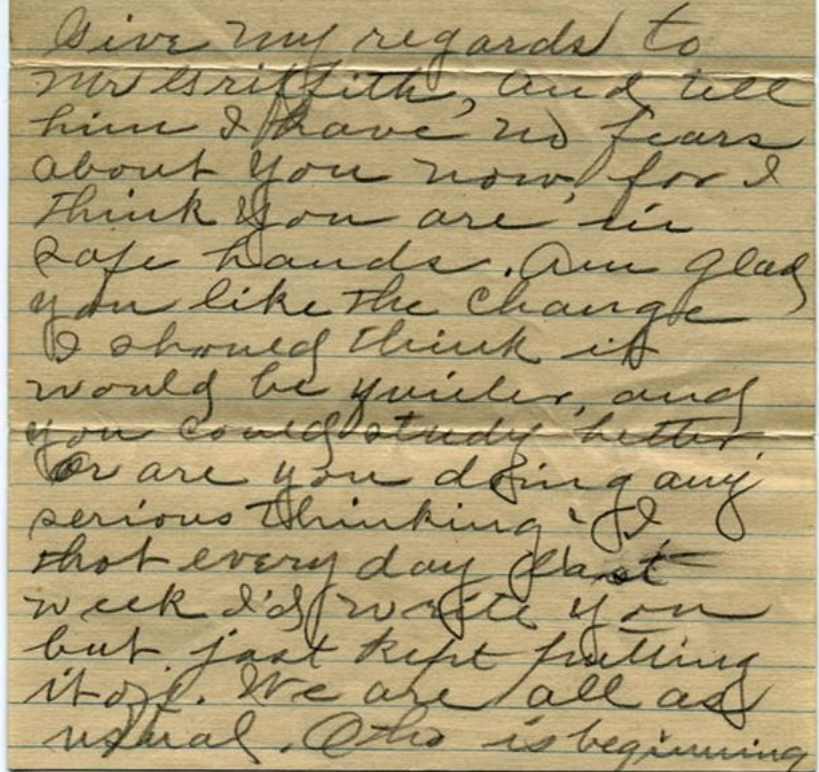 Give my regards to
Mr Griffith, and tell
him I have no fears
about you now, for I
think you are in
safe hands. Am glad
you like the change
I should think it
would be quieter, and
you could study better.
Or are you doing any
serious thinking? I
thot every day last
week I'd write you
but just kept putting
it off. We are all as
usual. Otho is beginning